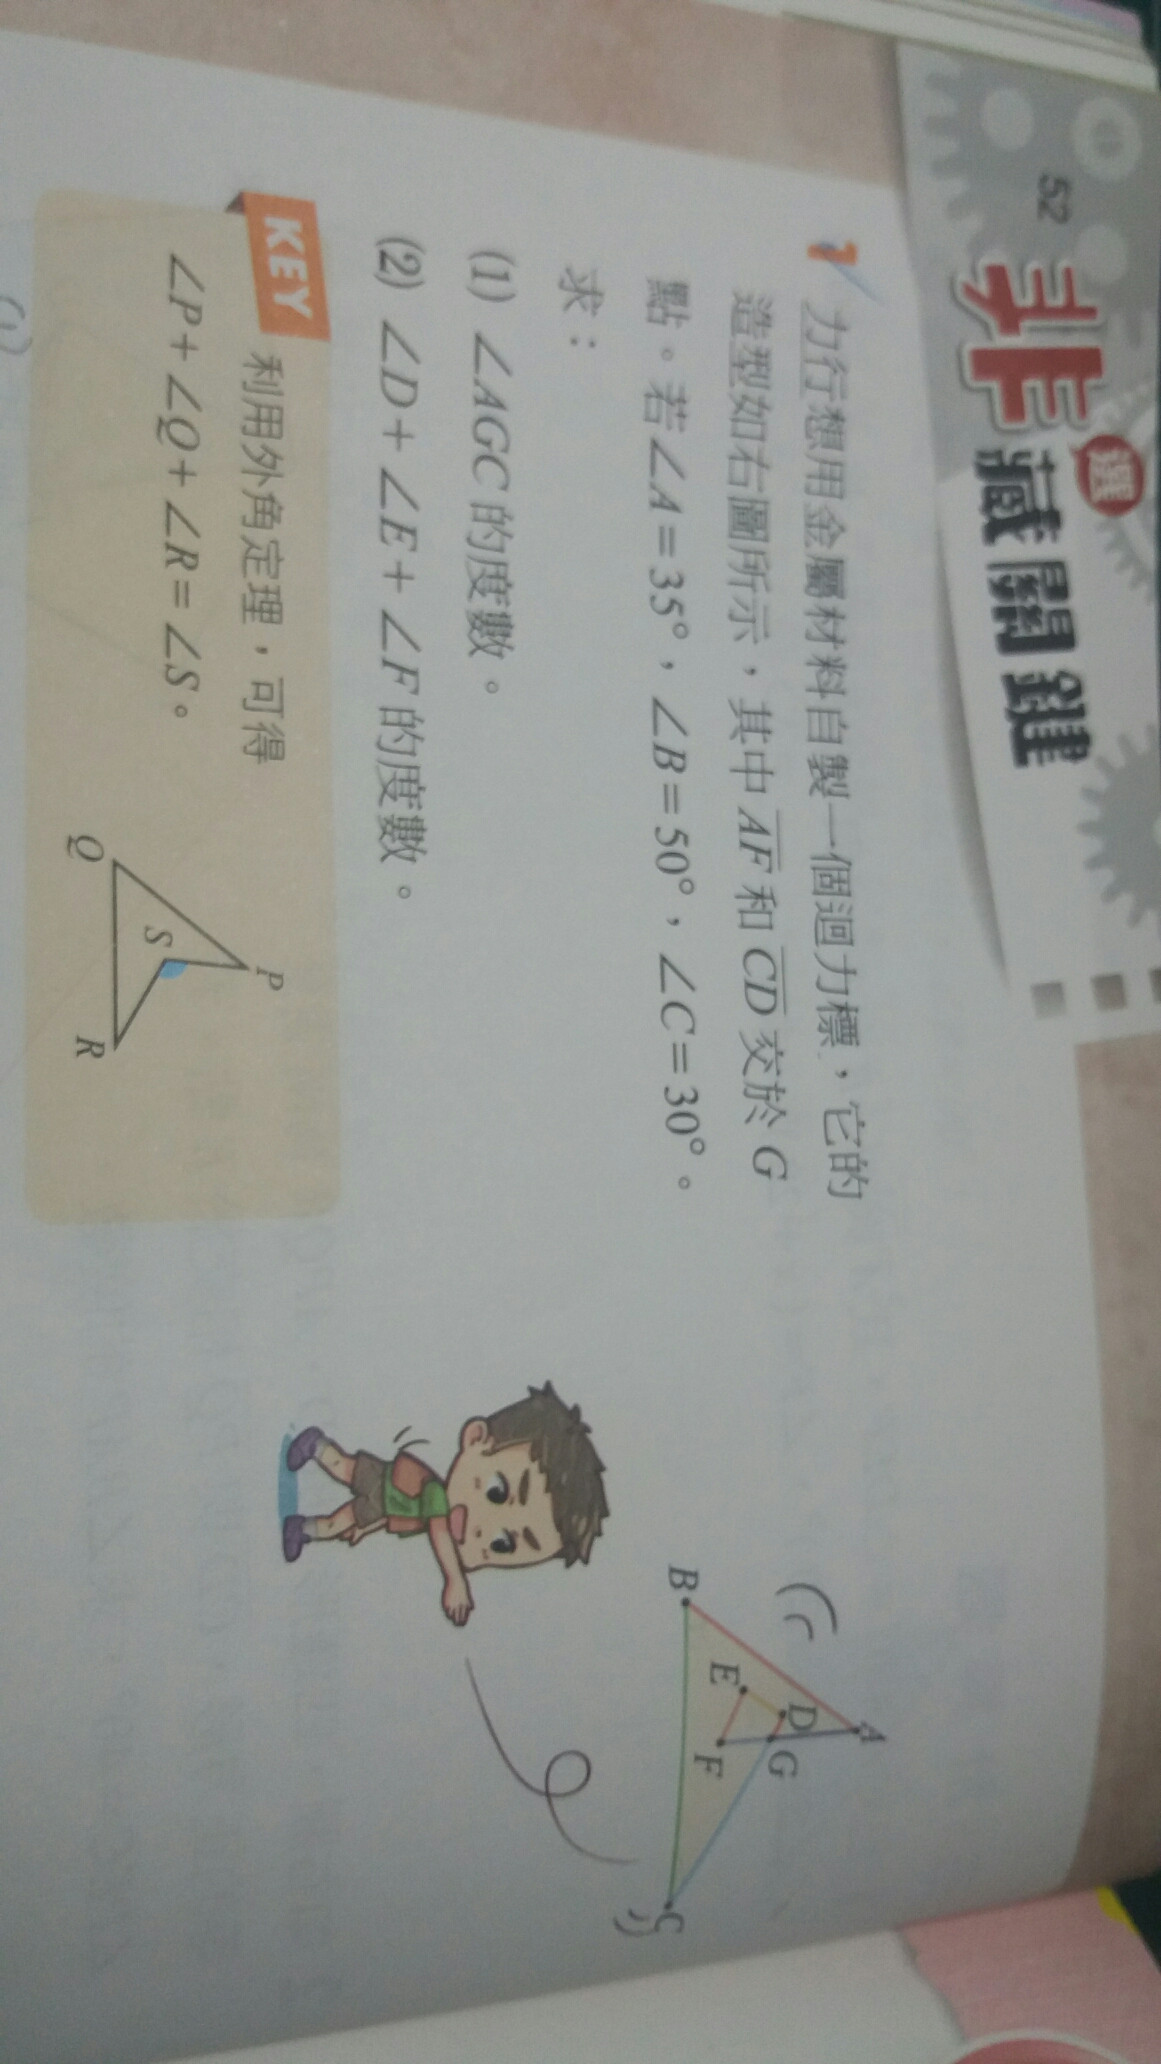 52
非選藏關鍵
1 力行想用金屬材料自製一個迴力標，它的
造型如右圖所示，其中AF和CD交於G
點。若∠A=35°，∠B=50°，∠C=30°。
求：
(1) ∠AGC的度數。
(2) ∠D+∠E+∠F的度數。
A
B
C
D
E
F
G
KEY 利用外角定理，可得
∠P+∠Q+∠R=∠S。
P
Q
R
S
(1)